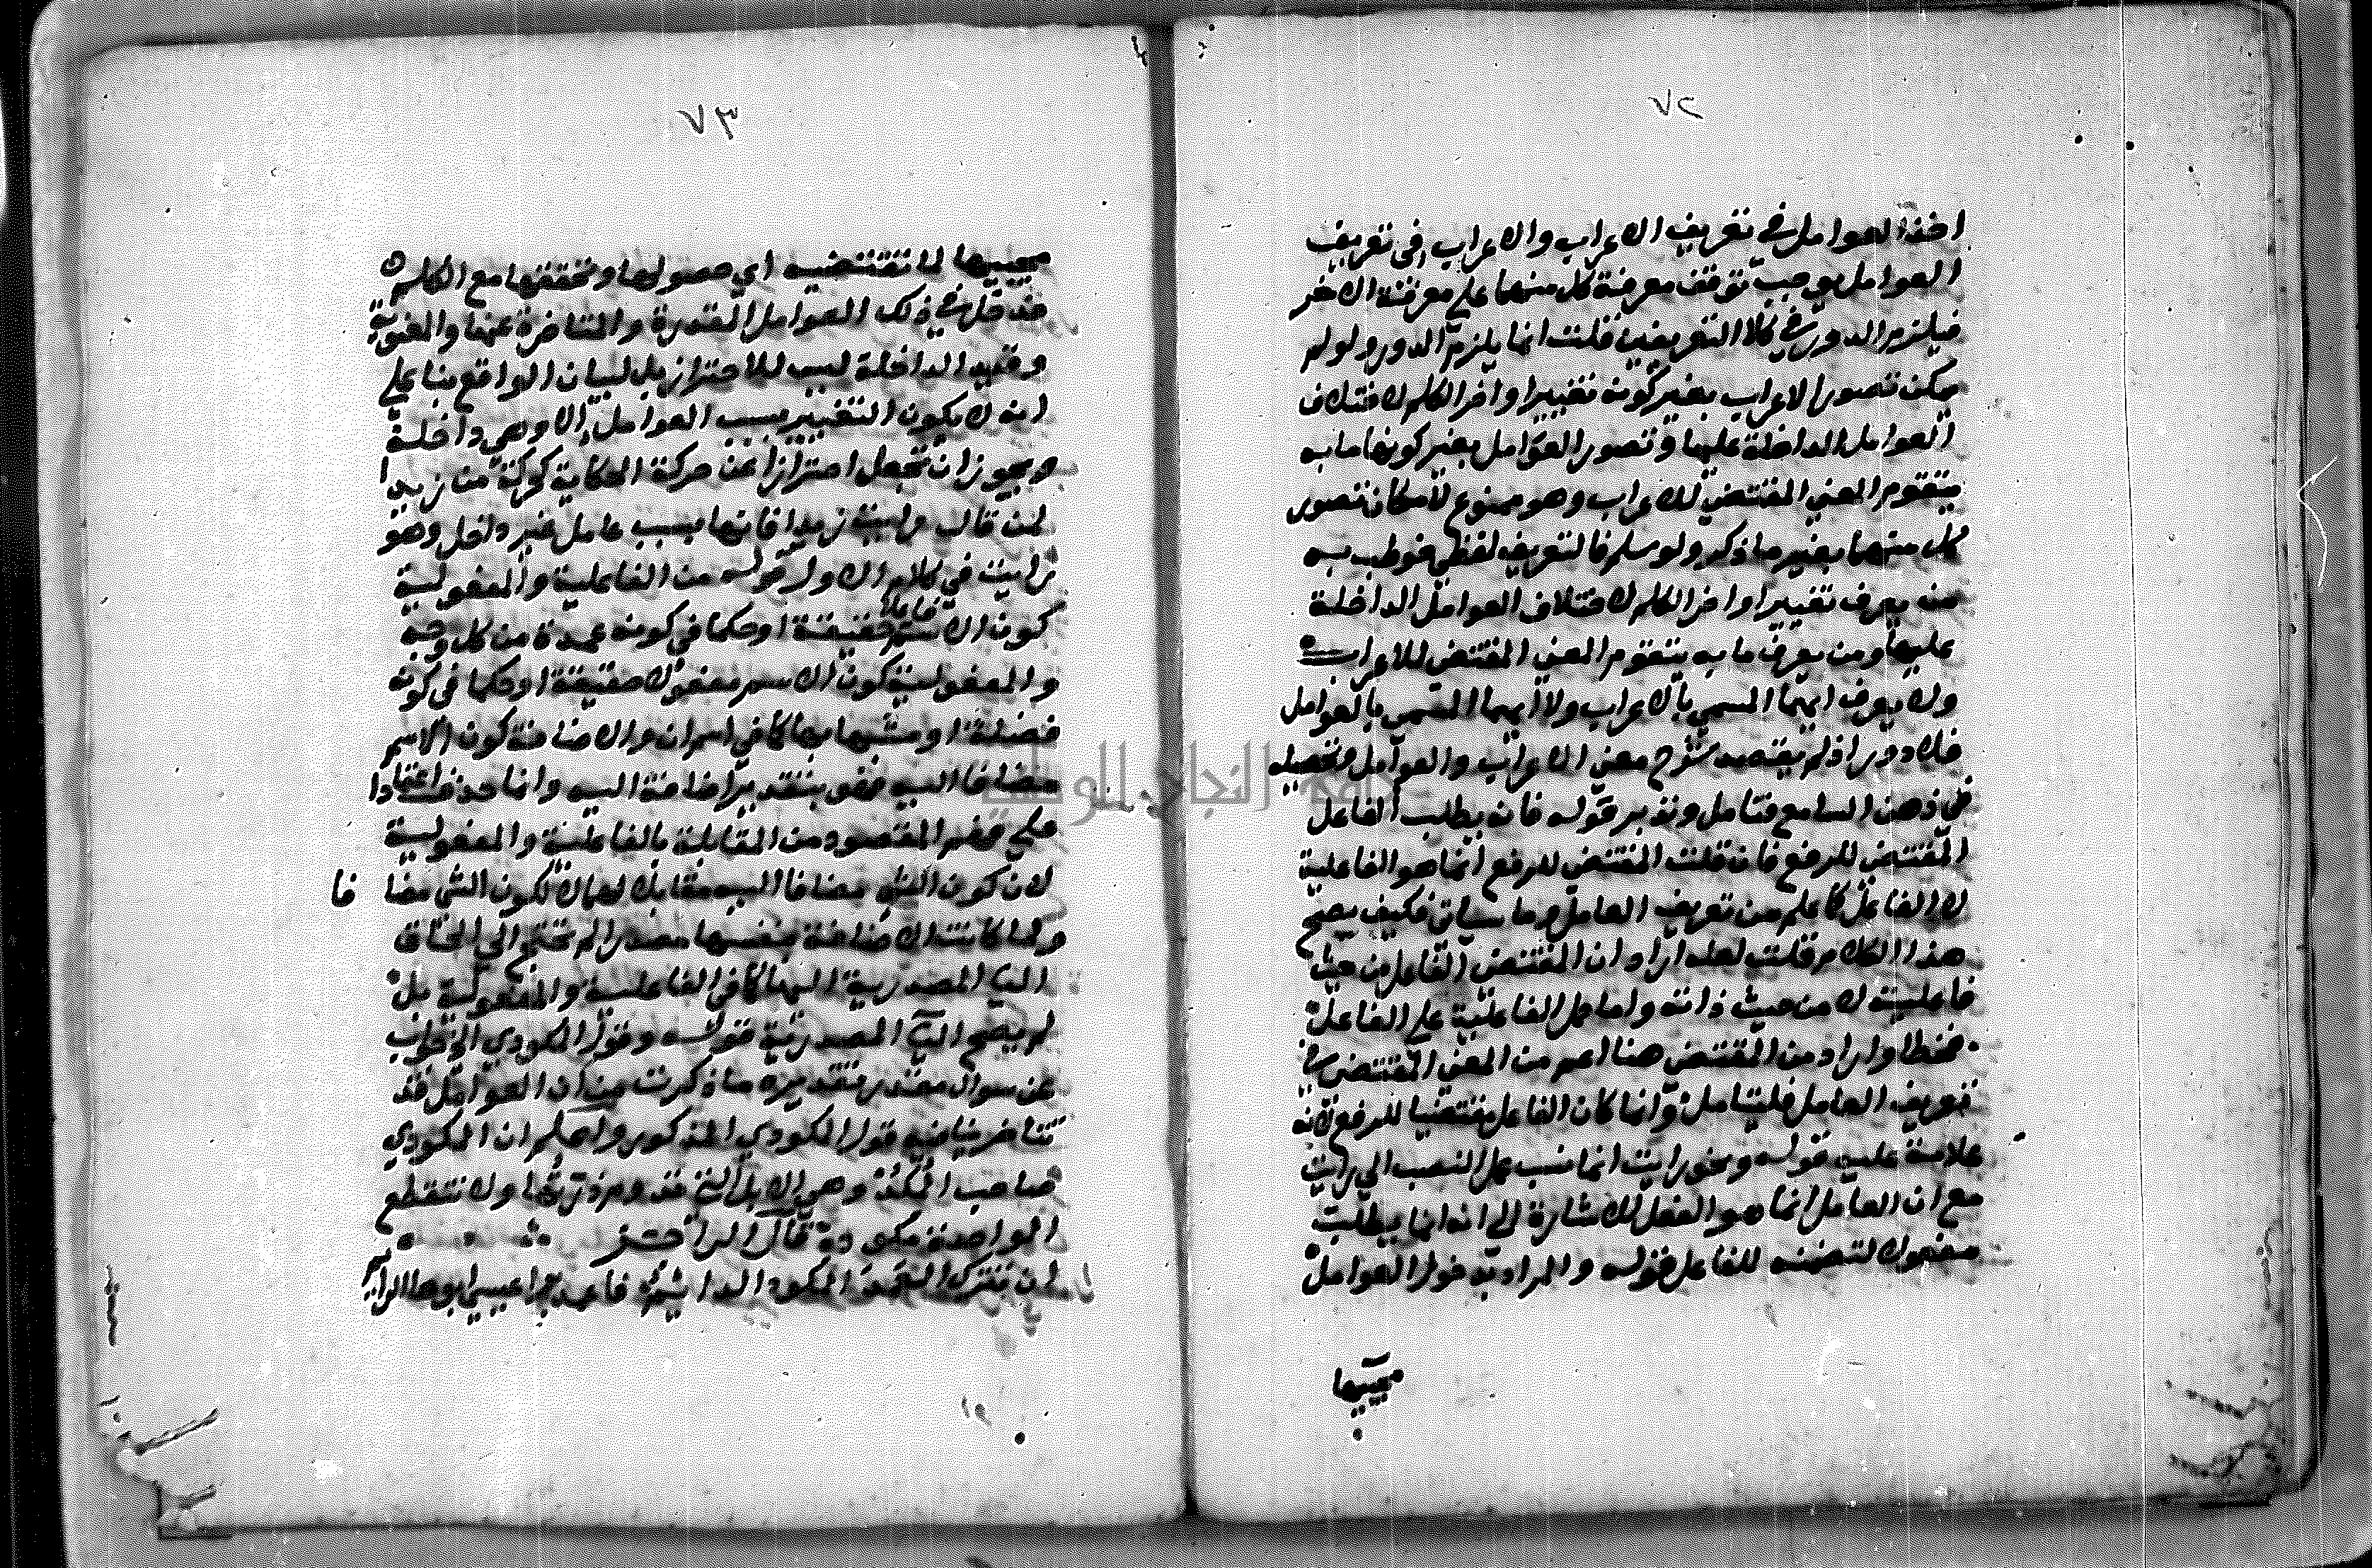 ٧٢
اخذ العوامل في تعريف الاعراب والاعراب في تعريف
العوامل يوجب توقف معرفة كل منهما على معرفة الاخر
فيلزم الدور في كلا التعريفين قلت انما يلزم الدور لو لم
يمكن تصور الاعراب بغير كونه تغيير اواخر الكلم لاختلاف
العوامل الداخلة عليها وتصور العوامل بغير كونها ما به
يتقوم المعنى المقتضى للاعراب وهو ممنوع لامكان تصور
كل منهما بغير ما ذكر ولو سلم فالتعريف لفظي خوطب به
من يعرف تغيير اواخر الكلم لاختلاف العوامل الداخلة
عليها ومن يعرف ما به يتقوم المعنى المقتضى للاعراب
ولا يعرف ايهما المسمى بالاعراب ولا ايهما المسمى بالعوامل
فلا دور اذ لم يقصد شرح معنى الاعراب والعوامل وتحصيله
في ذهن السامع فتامل وتدبر قوله فانه يطلب الفاعل
المقتضى للرفع فان قلت المقتضى للرفع انما هو الفاعلية
لا الفاعل كما علم من تعريف العامل وما سياتي فكيف يصح
هذا الكلام قلت لعله اراد ان المقتضى الفاعل من حيث
فاعليته لا من حيث ذاته واما حمل الفاعلية على الفاعل
فخطا واراد من المقتضى هنا اعم من المعنى المقتضى في
تعريف العامل فليتامل وانما كان الفاعل مقتضيا للرفع لانه
علامة عليه قوله ونحو رايت انما نسب عمل النصب الى رايت
مع ان العامل انما هو الفعل للاشارة الى انه انما يطلب
مفعولا لتضمنه للفاعل قوله والمراد به خول العوامل
مجيئها
٧٣
مجيئها لما تقتضيه اي حصولها وتحققها مع الكلم
فدخل في ذلك العوامل المقدرة والمتاخرة عنها والمعنوية
وقيد الداخلة ليس للاحتراز بل لبيان الواقع بنا على
انه لا يكون التغيير بسبب العوامل الا وهي داخلة
ويجوز ان تجعل احترازا عن حركة الحكاية كحركة من زيدا
لمن قال رايت زيدا فانها بسبب عامل غير داخل وهو
رايت في كلام الاول قوله من الفاعلية والمفعولية
كون الاسم فاعلا حقيقة او حكما في كونه عمدة من كل وجه
والمفعولية كون الاسم مفعولا حقيقة او حكما في كونه
فضلة او مشبها بها كما في اسم ان والاضافة كون الاسم
مضافا اليه فهو بتقدير اضافة اليه وانما حذفت اعتمادا
على فهم المقصود من المقابلة بالفاعلية والمفعولية
لان كون الشي مضافا اليه مقابل لهما لا لكون الشي مضا فا
ولما كانت الاضافة بنفسها مصدرا لم تحتج الى الحاق
اليا المصدرية اليها كما في الفاعلية والمفعولية بل
لم يصح اليآ المصدرية قوله وقول المكودي الخ جواب
عن سوال مقدر تقديره ما ذكرت من ان العوامل قد
تتاخر ينافيه قول المكودي المذكور واعلم ان المكودي
صاحب المكد وهي الابل التي تقدوم ولا تنقطع
الواحدة مكودة قال الراجز